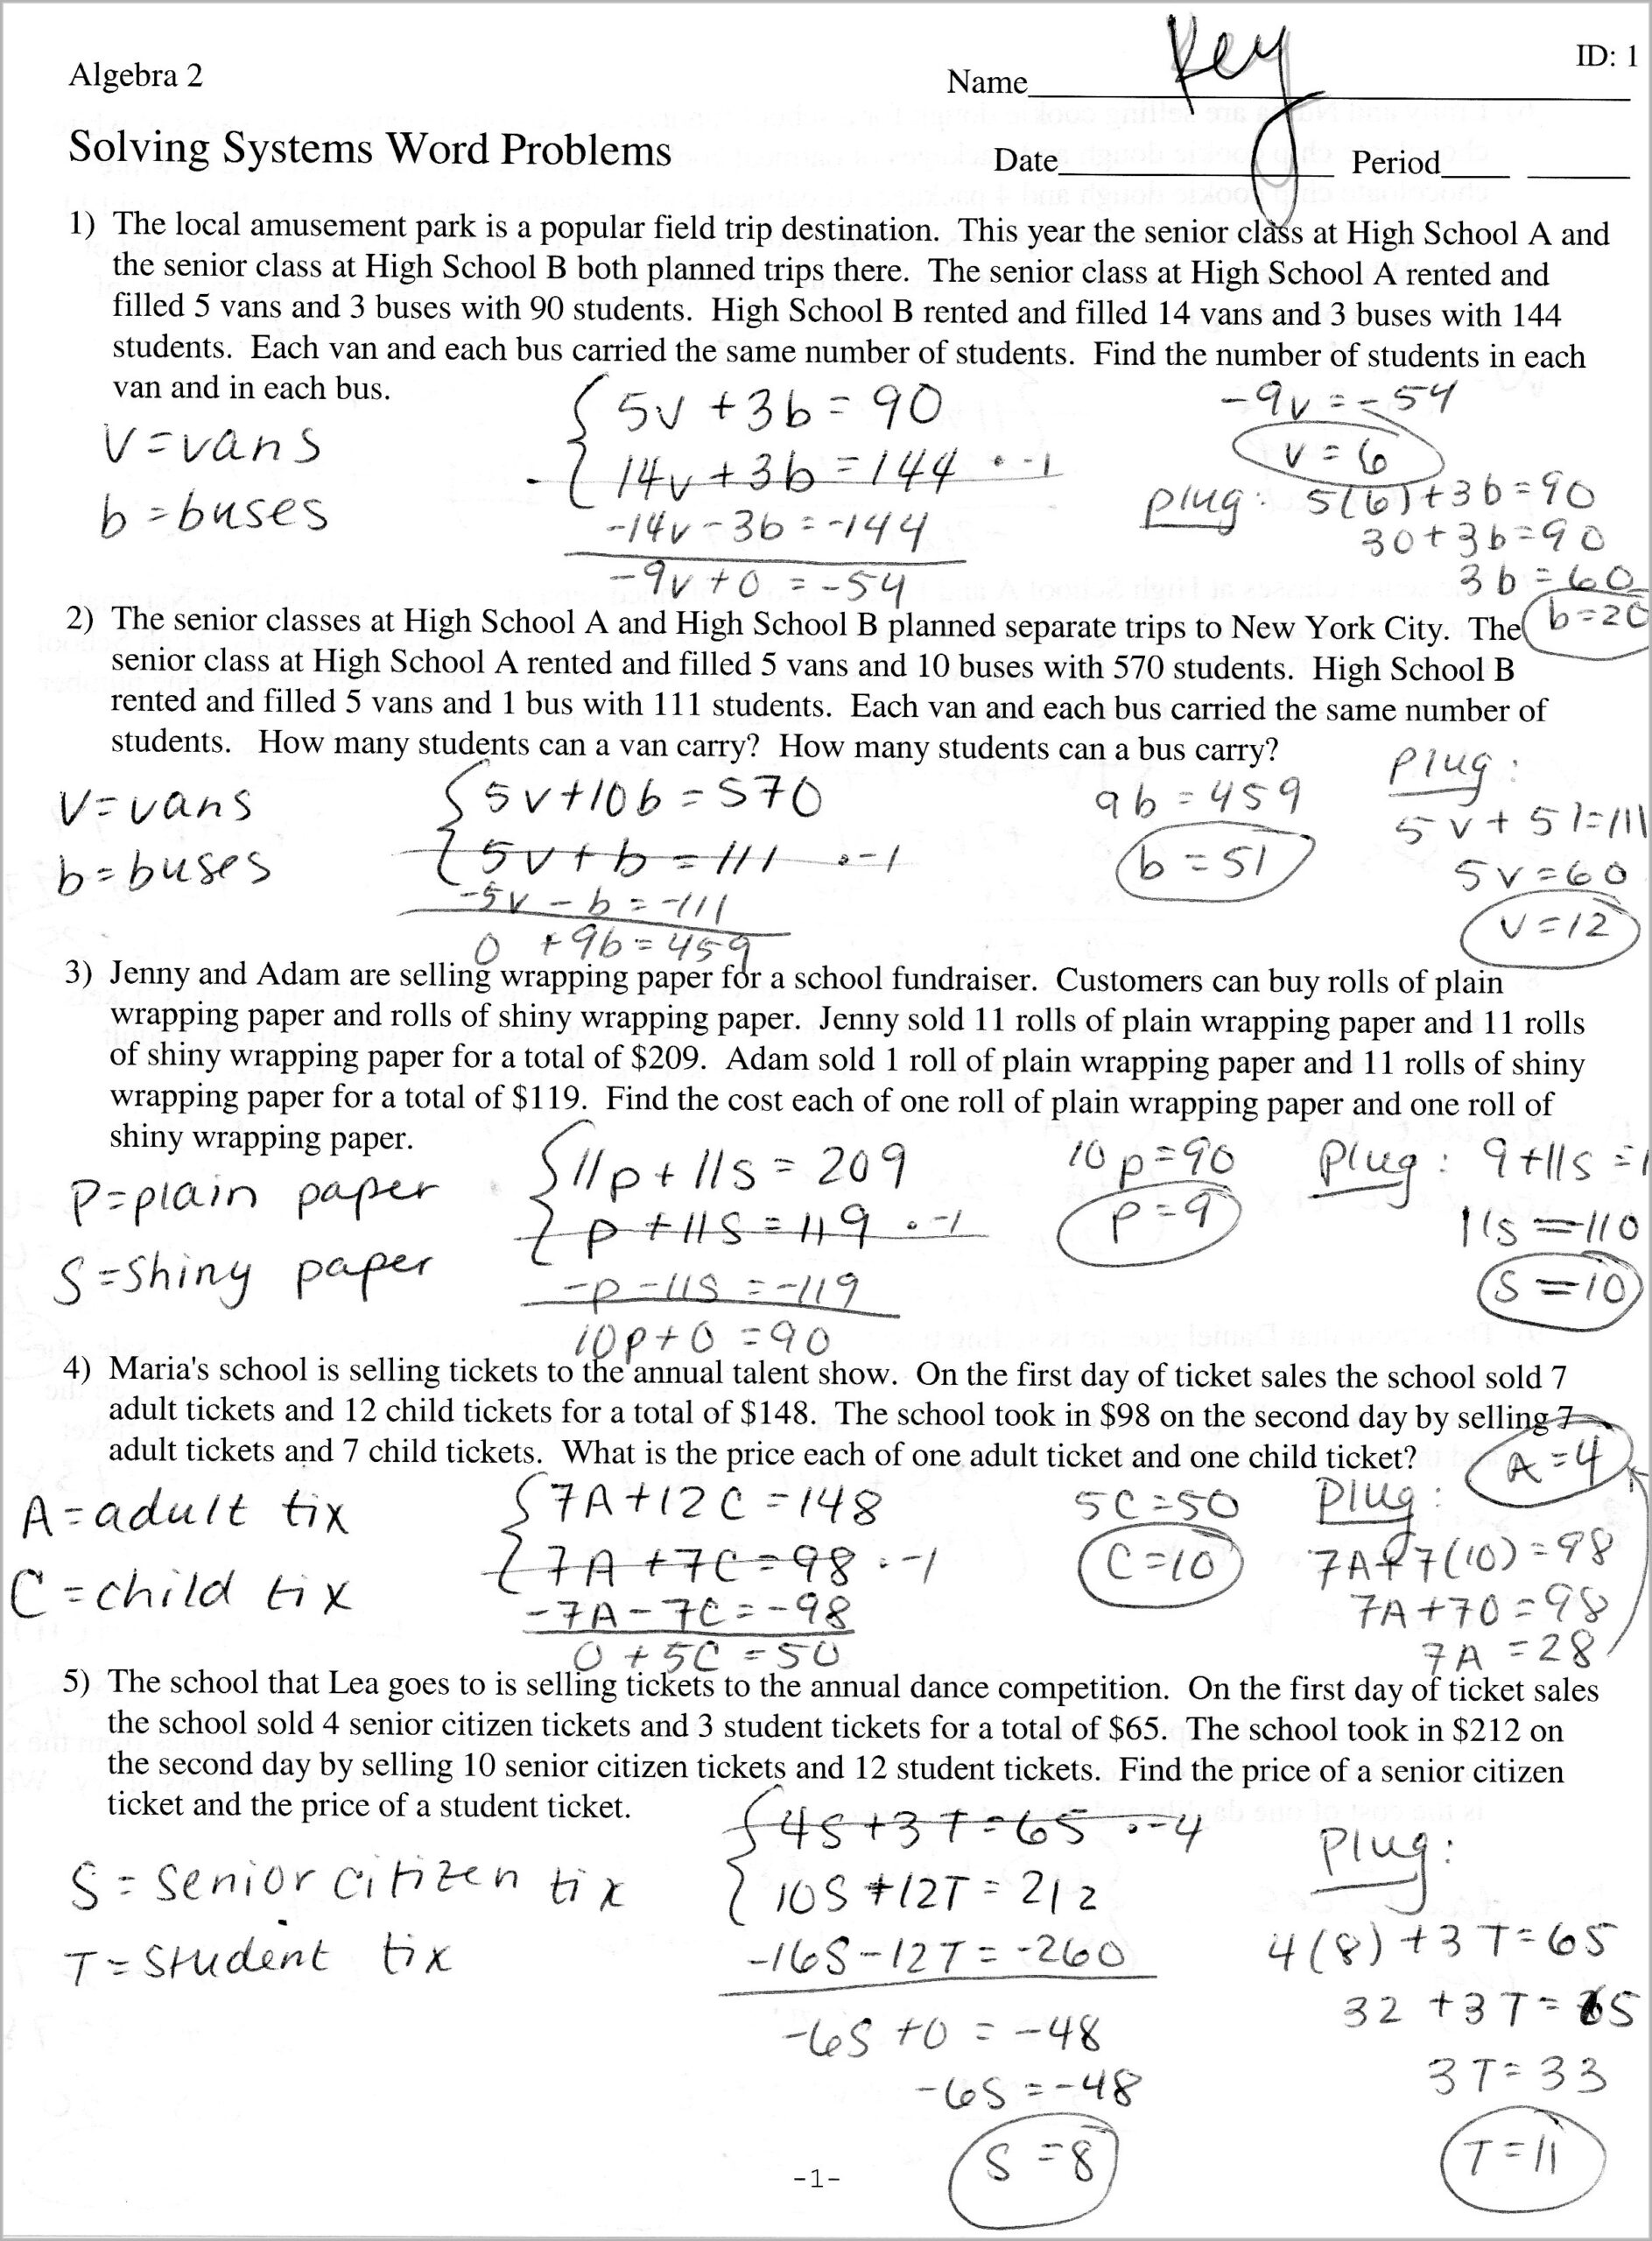 ID: 1
Algebra 2
Name Key
Solving Systems Word Problems
Date Period
1) The local amusement park is a popular field trip destination. This year the senior class at High School A and
the senior class at High School B both planned trips there. The senior class at High School A rented and
filled 5 vans and 3 buses with 90 students. High School B rented and filled 14 vans and 3 buses with 144
students. Each van and each bus carried the same number of students. Find the number of students in each
van and in each bus.
V=vans
b=buses
5v+3b=90
14v+3b=144 ·-1
-14v-3b=-144
-9v+0=-54
-9v=-54
v=6
plug: 5(6)+3b=90
30+3b=90
3b=60
b=20
2) The senior classes at High School A and High School B planned separate trips to New York City. The
senior class at High School A rented and filled 5 vans and 10 buses with 570 students. High School B
rented and filled 5 vans and 1 bus with 111 students. Each van and each bus carried the same number of
students. How many students can a van carry? How many students can a bus carry?
V=vans
b=buses
5v+10b=570
5v+b=111 ·-1
-5v-b=-111
0+9b=459
9b=459
b=51
Plug:
5v+51=111
5v=60
v=12
3) Jenny and Adam are selling wrapping paper for a school fundraiser. Customers can buy rolls of plain
wrapping paper and rolls of shiny wrapping paper. Jenny sold 11 rolls of plain wrapping paper and 11 rolls
of shiny wrapping paper for a total of $209. Adam sold 1 roll of plain wrapping paper and 11 rolls of shiny
wrapping paper for a total of $119. Find the cost each of one roll of plain wrapping paper and one roll of
shiny wrapping paper.
P=plain paper
S=Shiny paper
11p+11s=209
p+11s=119 ·-1
-p-11s=-119
10p+0=90
10p=90
p=9
Plug: 9+11s=1
11s=110
S=10
4) Maria's school is selling tickets to the annual talent show. On the first day of ticket sales the school sold 7
adult tickets and 12 child tickets for a total of $148. The school took in $98 on the second day by selling 7
adult tickets and 7 child tickets. What is the price each of one adult ticket and one child ticket?
A=adult tix
C=child tix
7A+12C=148
7A+7C=98 ·-1
-7A-7C=-98
0+5C=50
5C=50
C=10
Plug:
7A+7(10)=98
7A+70=98
7A=28
A=4
5) The school that Lea goes to is selling tickets to the annual dance competition. On the first day of ticket sales
the school sold 4 senior citizen tickets and 3 student tickets for a total of $65. The school took in $212 on
the second day by selling 10 senior citizen tickets and 12 student tickets. Find the price of a senior citizen
ticket and the price of a student ticket.
S=senior citizen tix
T=student tix
4S+3T=65 ·-4
10S+12T=212
-16S-12T=-260
-6S+0=-48
-6S=-48
S=8
Plug:
4(8)+3T=65
32+3T=65
3T=33
T=11
-1-